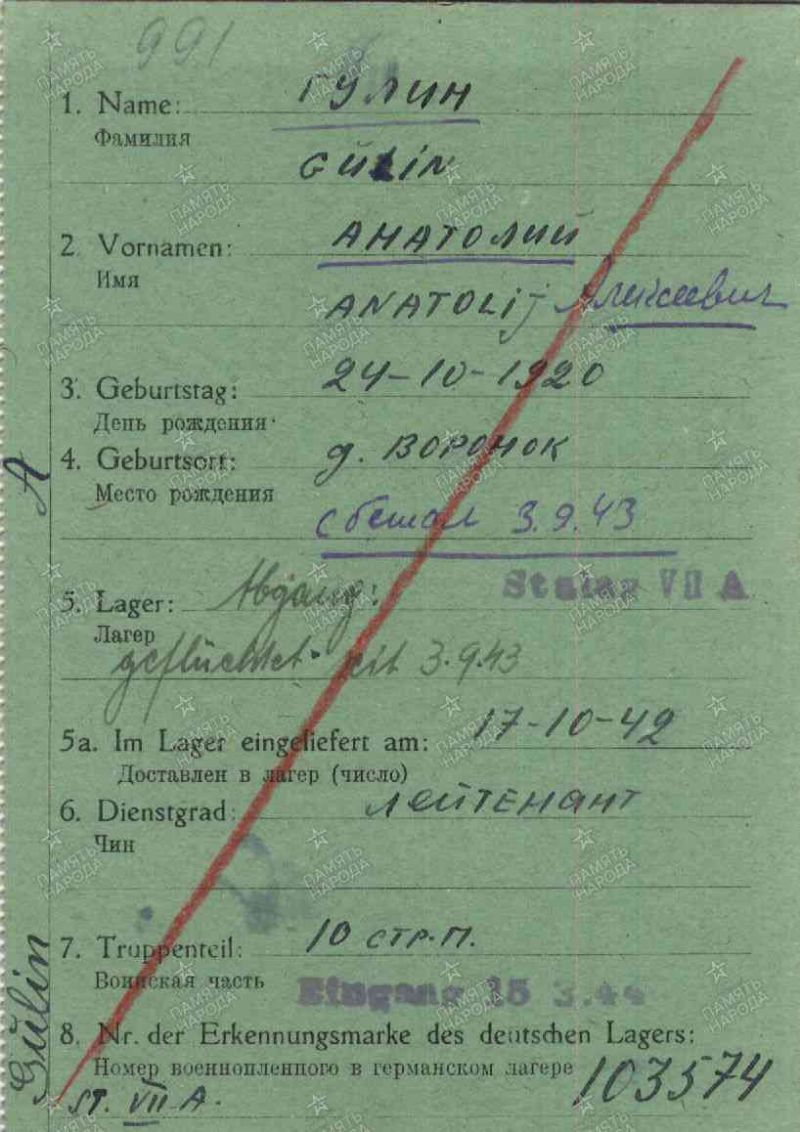 991
1. Name: ГУЛИН
Фамилия
GÜLIN
2. Vornamen: АНАТОЛИЙ
Имя
ANATOLIj Алексеевич
3. Geburtstag: 24-10-1920
День рождения
4. Geburtsort: д. ВОРОНОК
Место рождения
сбежал 3.9.43
5. Lager: Abgang: Stalag VII A
Лагер
geflüchtet seit 3.9.43
5a. Im Lager eingeliefert am: 17-10-42
Доставлен в лагер (число)
6. Dienstgrad: ЛЕЙТЕНАНТ
Чин
7. Truppenteil: 10 СТР.П.
Воинская часть
Eingang 15 3.44
8. Nr. der Erkennungsmarke des deutschen Lagers:
Номер военнопленного в германском лагере 103574
ST. VII A.
A
Gülin
ПАМЯТЬ НАРОДА